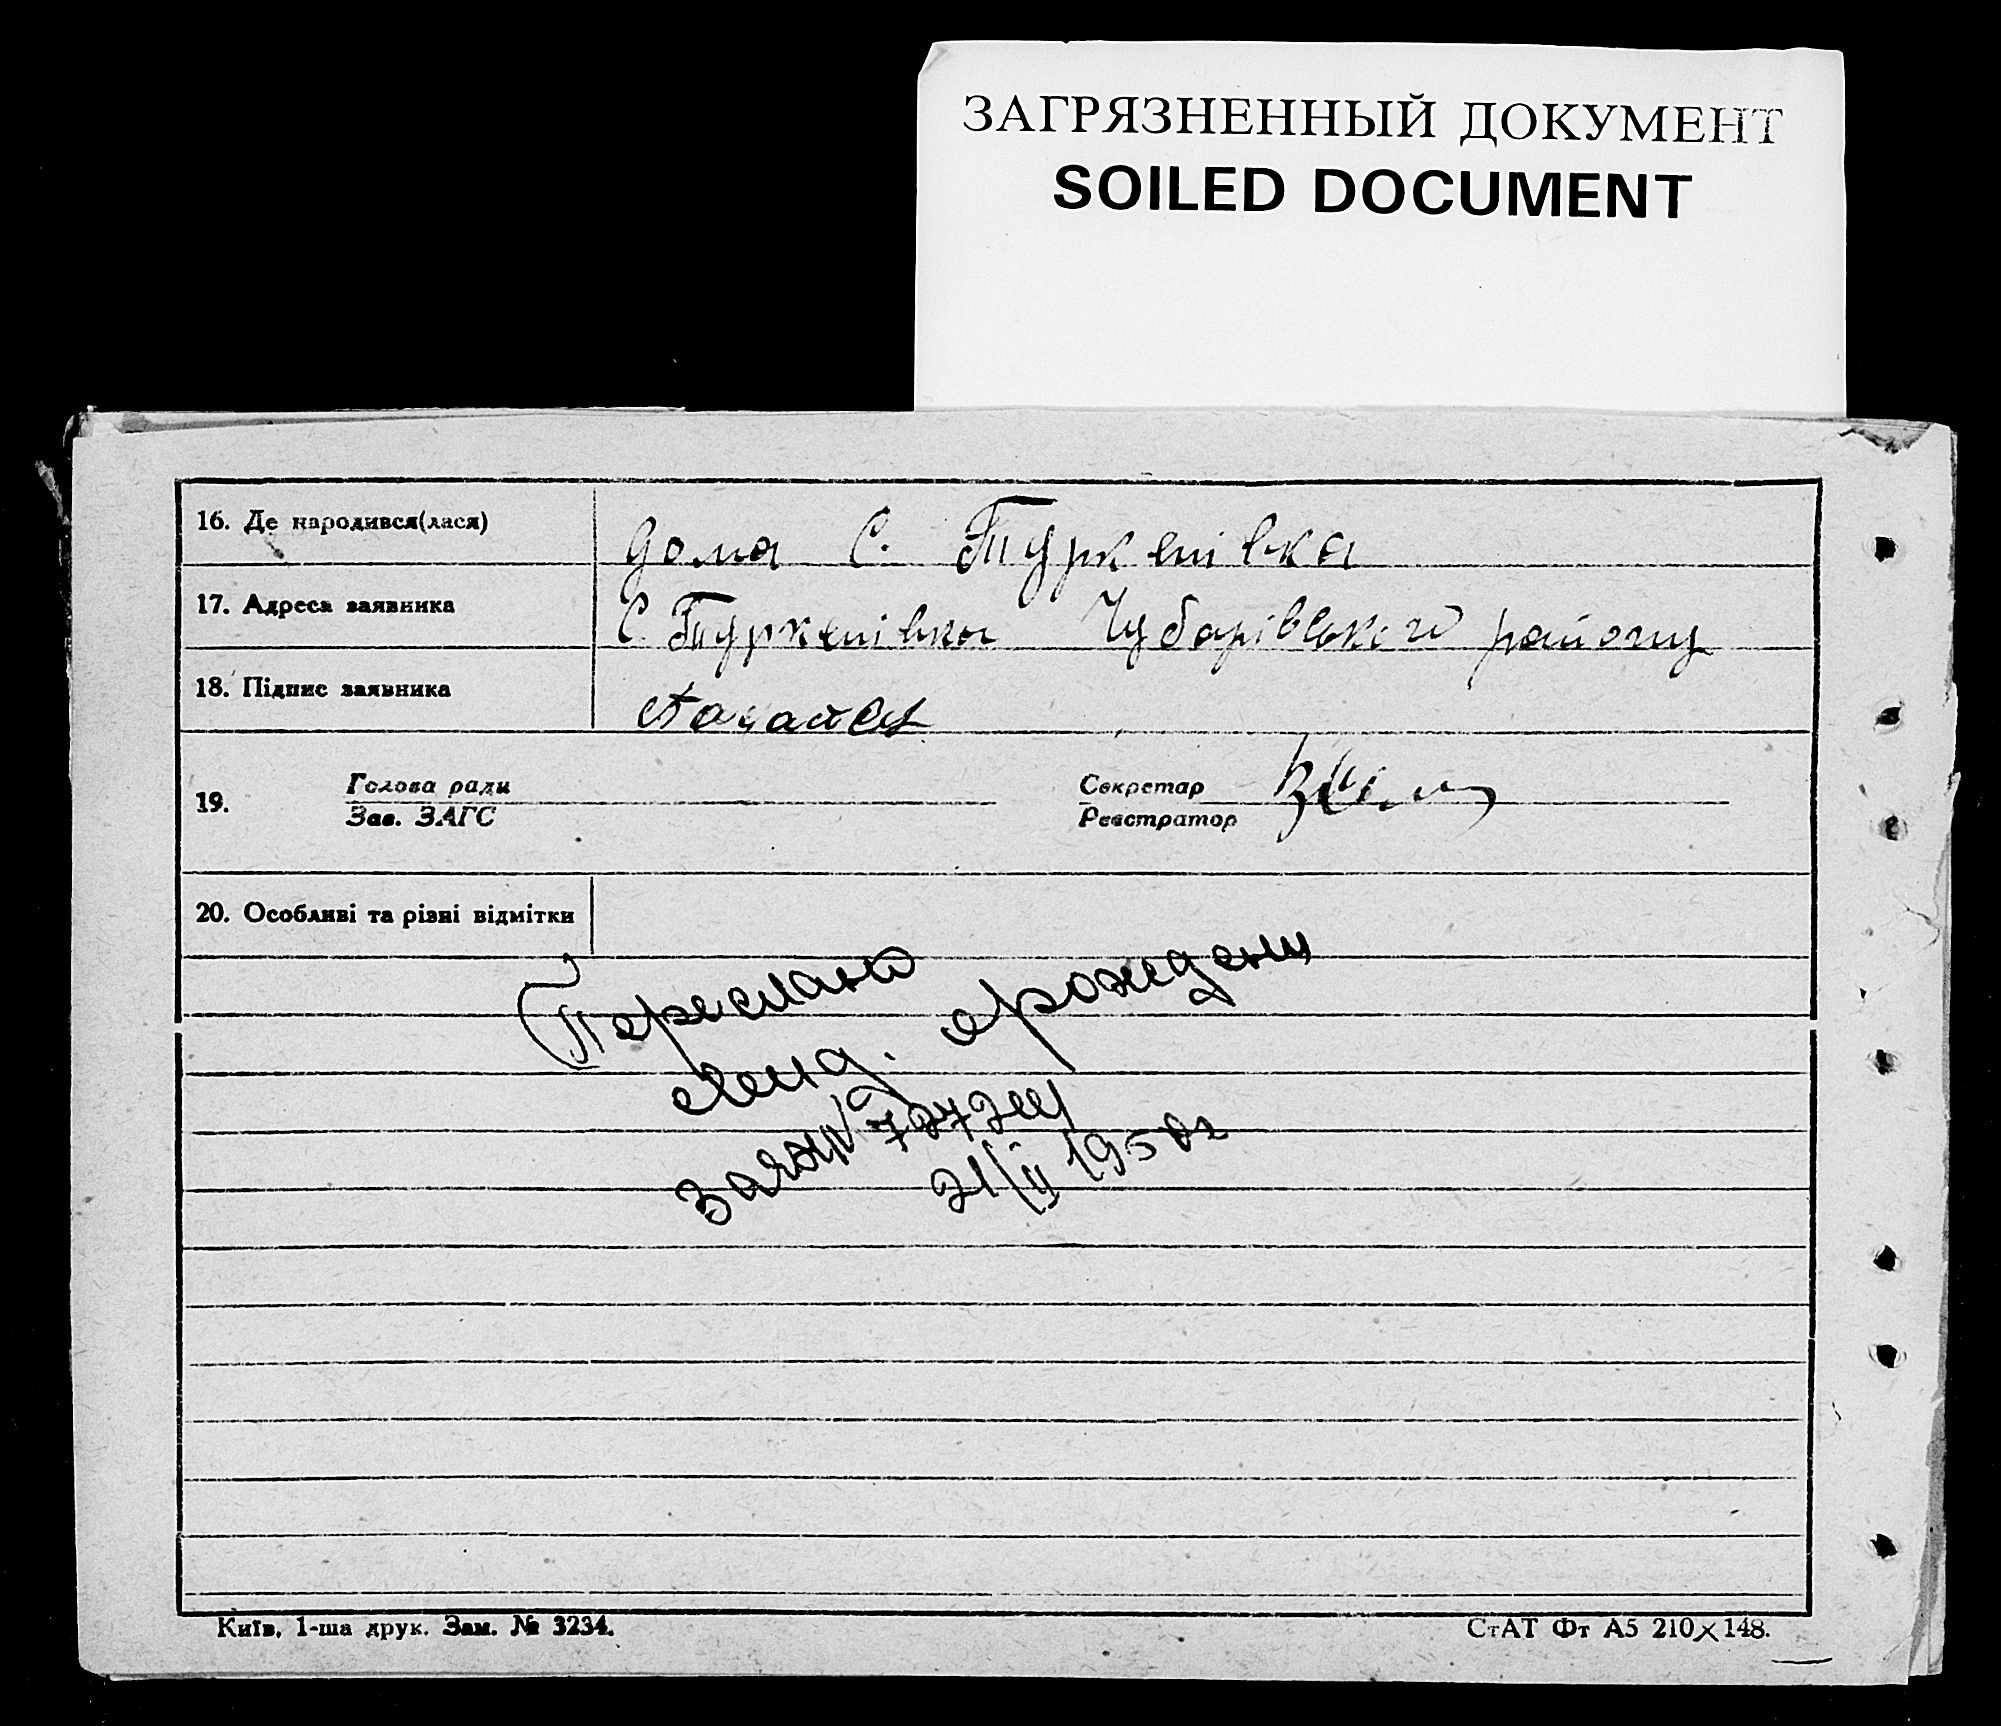 ЗАГРЯЗНЕННЫЙ ДОКУМЕНТ
SOILED DOCUMENT
16. Де народився(лася) дома С. Туркенівка
17. Адреса заявника С. Туркенівка Чубарівського району
18. Підпис заявника
19. Голова ради Секретар
Зав. ЗАГС Реєстратор
20. Особливі та різні відмітки
Переслано
о рождени
21/II 1958г
Київ, 1-ша друк. Зам. № 3234.
СтАТ Фт А5 210×148.